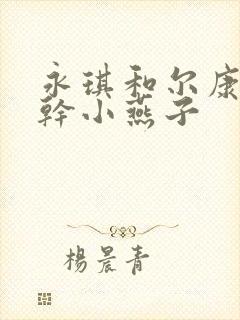 永琪和尔康
幹小燕子
楊晨青